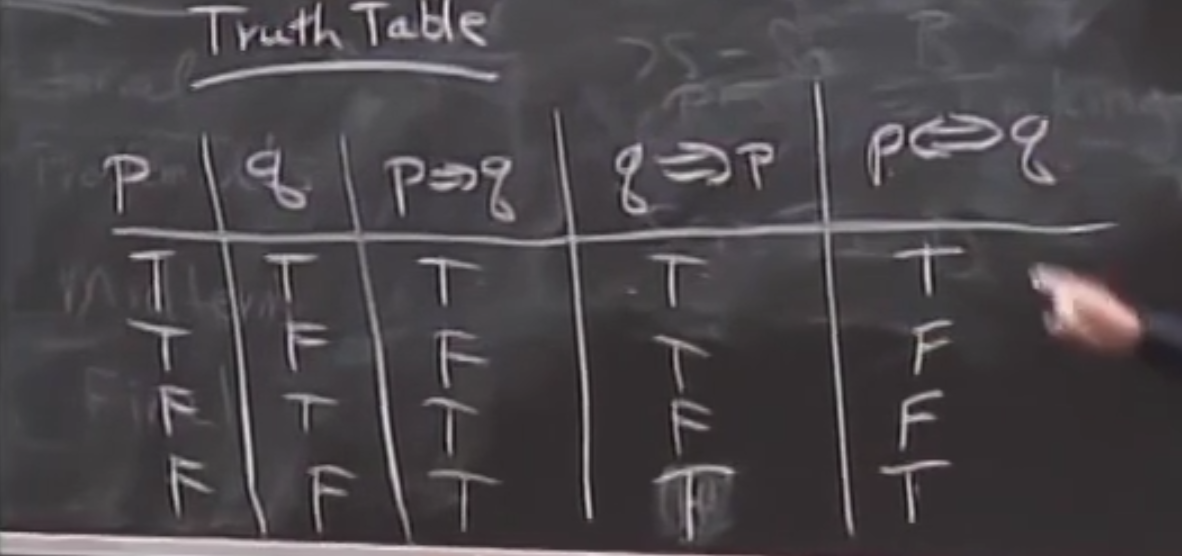 Truth Table
p q p⇒q q⇒p p⇔q
T T T T T
T F F T F
F T T F F
F F T T T